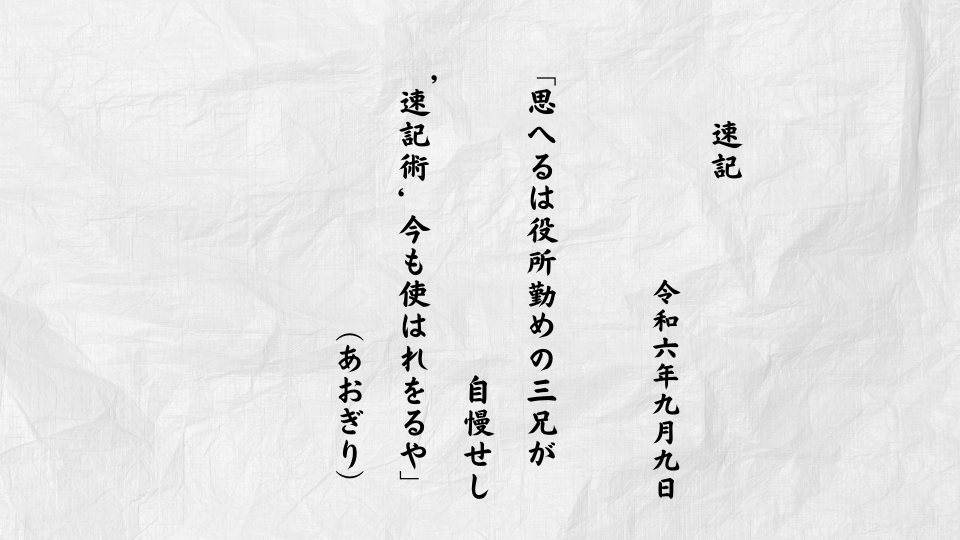 速記
令和六年九月九日
「思へるは役所勤めの三兄が
自慢せし
’速記術‘今も使はれをるや」
（あおぎり）